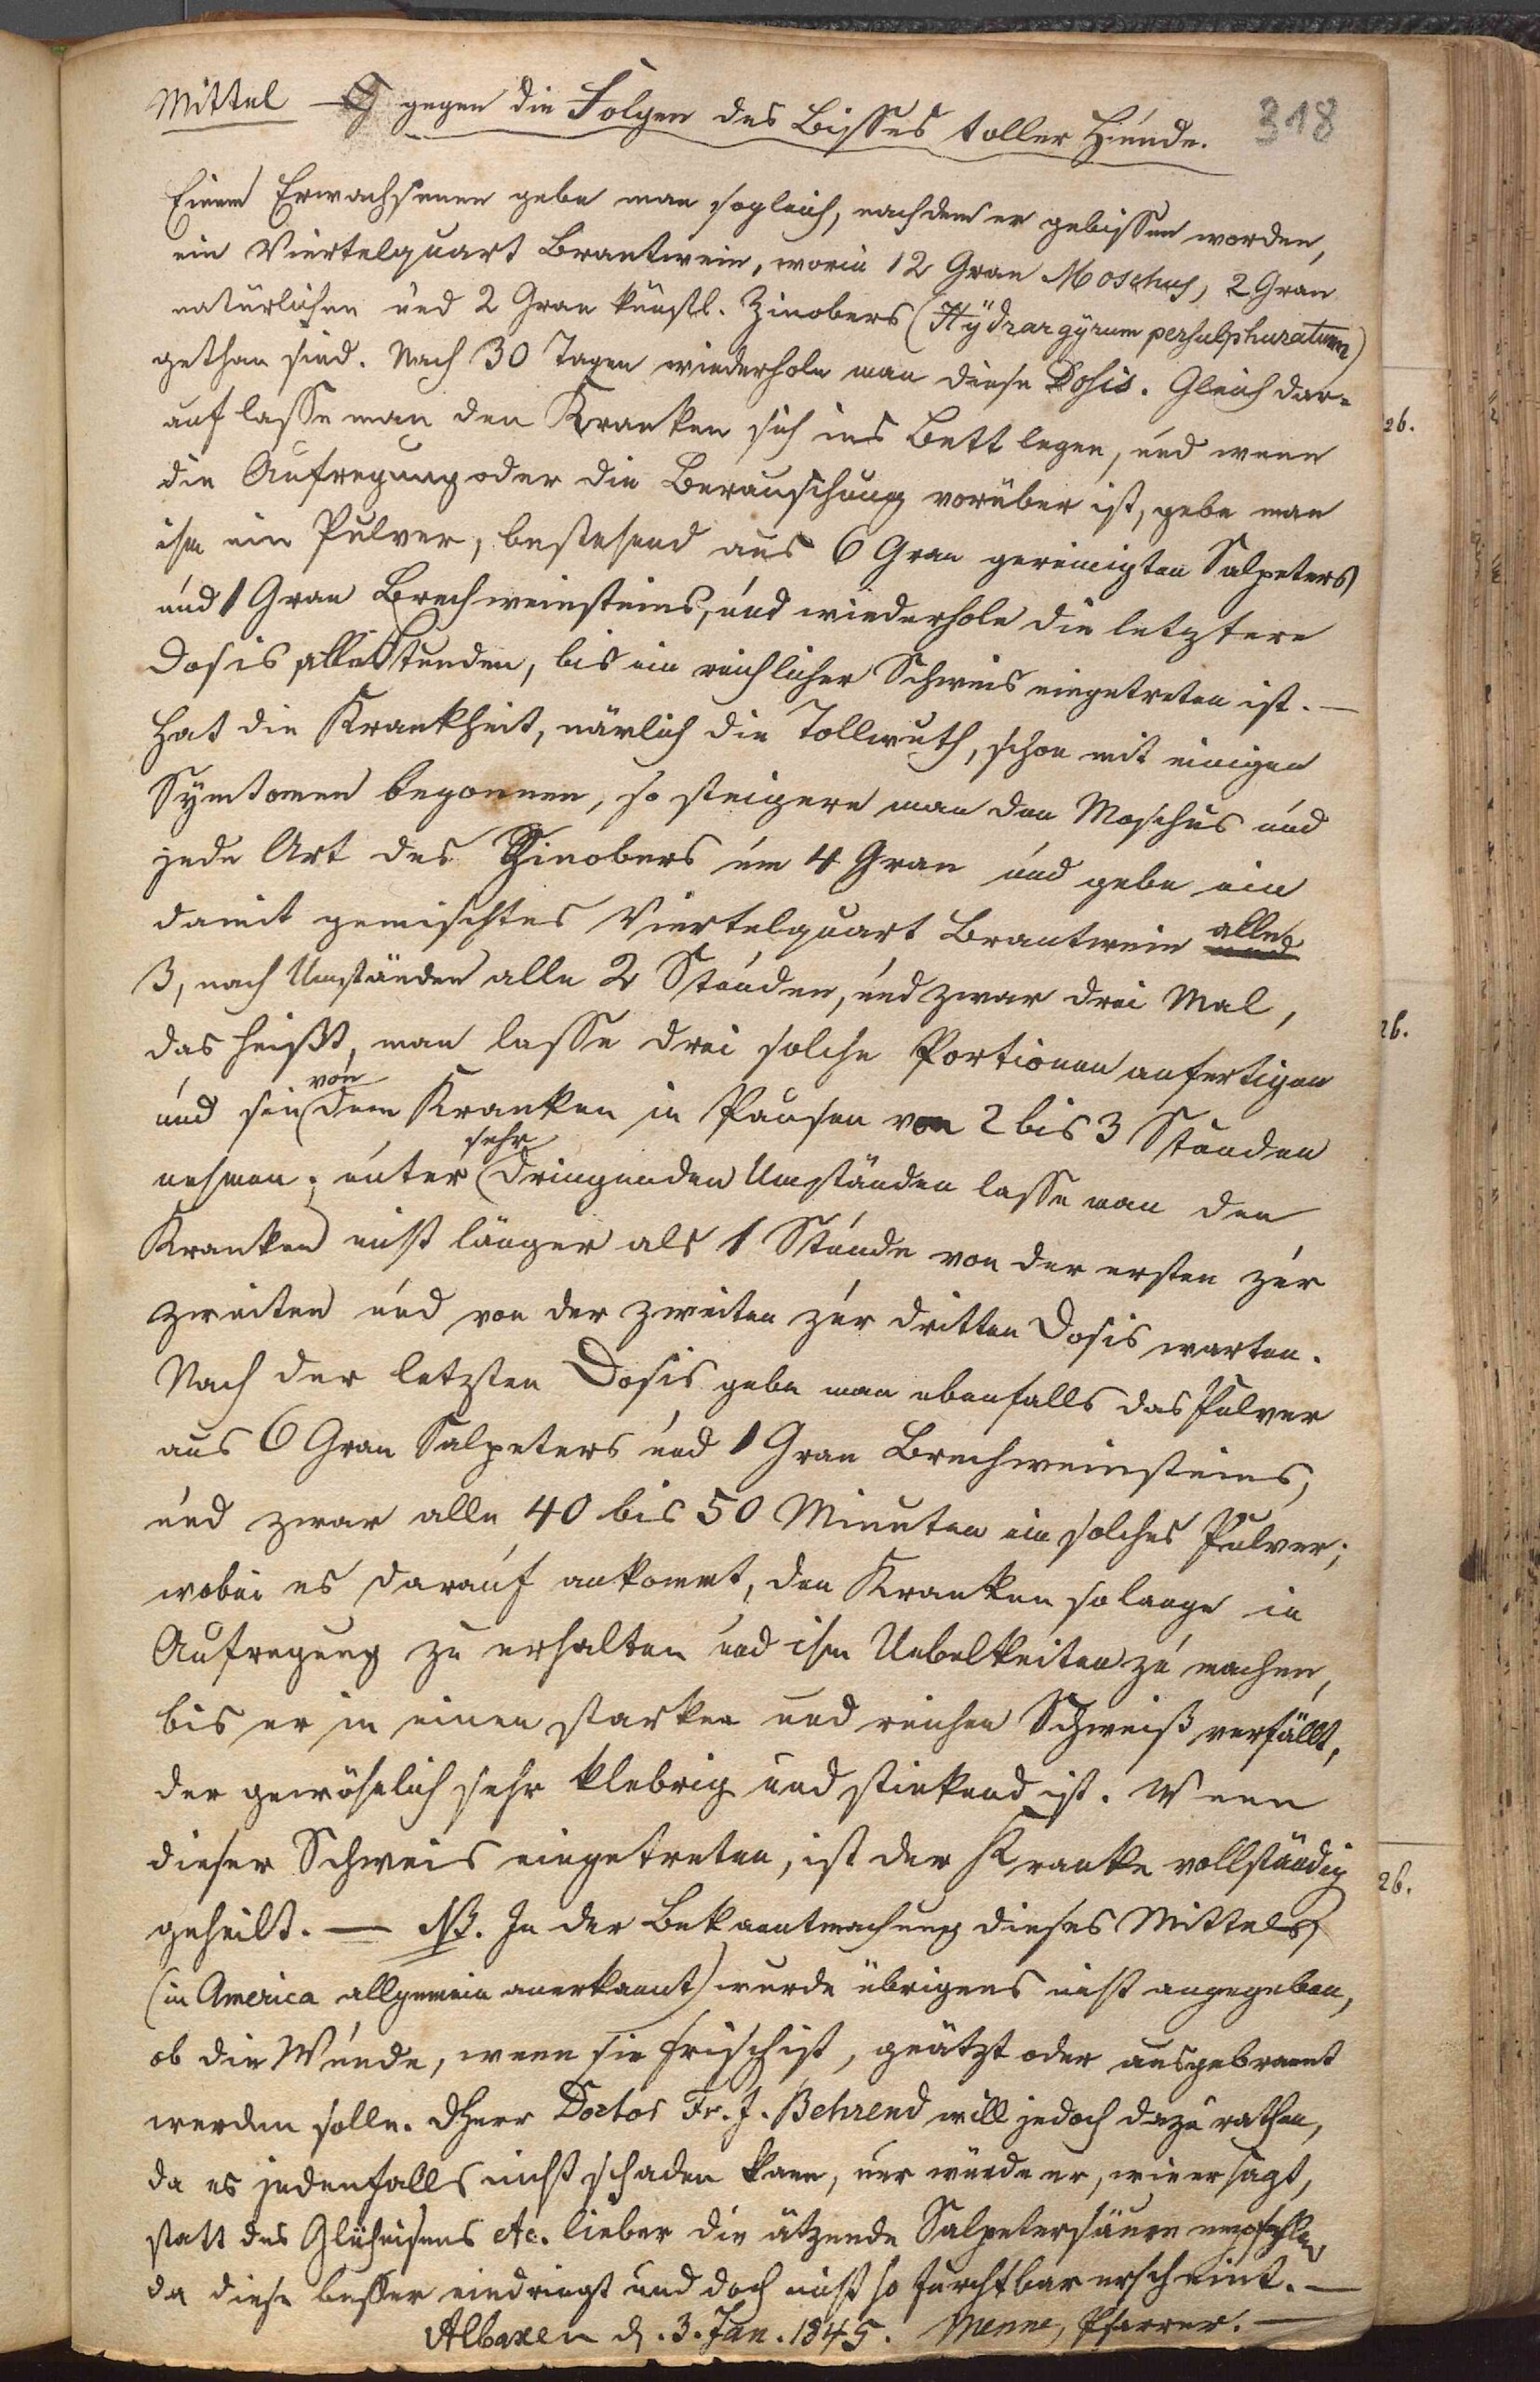 Mittel gegen die Folgen des Bisses toller Hunde. 318
Einem Erwachsenen gebe man sogleich, nachdem er gebissen worden,
ein Viertelquart Brantwein, worin 12 Gran Moschus, 2 Gran
natürlichen und 2 Gran künstl. Zinobers (Hÿdrargÿrum persulphuratum)
gethan sind. Nach 30 Tagen wiederhole man diese Dosis. Gleich dar=
auf lasse man den Kranken sich ins Bett legen, und wenn
die Aufregung oder die Berauschung vorüber ist, gebe man
ihm ein Pulver, bestehend aus 6 Gran gereinigten Salpeters
und 1 Gran Brechweinsteins, und wiederhole die letztere
Dosis alle Stunden, bis ein reichlicher Schweis eingetreten ist. —
Hat die Krankheit, nämlich die Tollwuth, schon mit einigen
Symtomen begonnen, so steigere man den Moschus und
jede Art des Zinobers um 4 Gran und gebe ein
damit gemischtes Viertelquart Brantwein alle
3, nach Umständen alle 2 Stunden, und zwar drei Mal,
das heißt, man lasse drei solche Portionen anfertigen
und sie von dem Kranken in Pausen von 2 bis 3 Stunden
nehmen; unter sehr dringenden Umständen lasse man den
Kranken nicht länger als 1 Stunde von der ersten zur
zweiten und von der zweiten zur dritten Dosis warten.
Nach der letzten Dosis gebe man ebenfalls das Pulver
aus 6 Gran Salpeters und 1 Gran Brechweinsteins,
und zwar alle 40 bis 50 Minuten ein solches Pulver;
wobei es darauf ankommt, den Kranken so lange in
Aufregung zu erhalten und ihm Uebelkeiten zu machen,
bis er in einen starken und reichen Schweiß verfällt,
der gewöhnlich sehr klebrig und stinkend ist. Wenn
dieser Schweis eingetreten, ist der Kranke vollständig
geheilt. — NB. In der Bekanntmachung dieses Mittels
(in America allgemein anerkannt) wurde übrigens nicht angegeben,
ob die Wunde, wenn sie frisch ist, geätzt oder ausgebrannt
werden solle. Herr Doctor Fr. J. Behrend will jedoch dazu rathen,
da es jedenfalls nicht schaden kann, nur würde er, wie er sagt,
statt des Glüheisens etc. lieber die ätzende Salpetersäure empfehlen
da diese besser eindringt und doch nicht so furchtbar erscheint. —
Albaxen d. 3. Jan. 1845. Menne, Pfarrer. —
26.
26.
26.